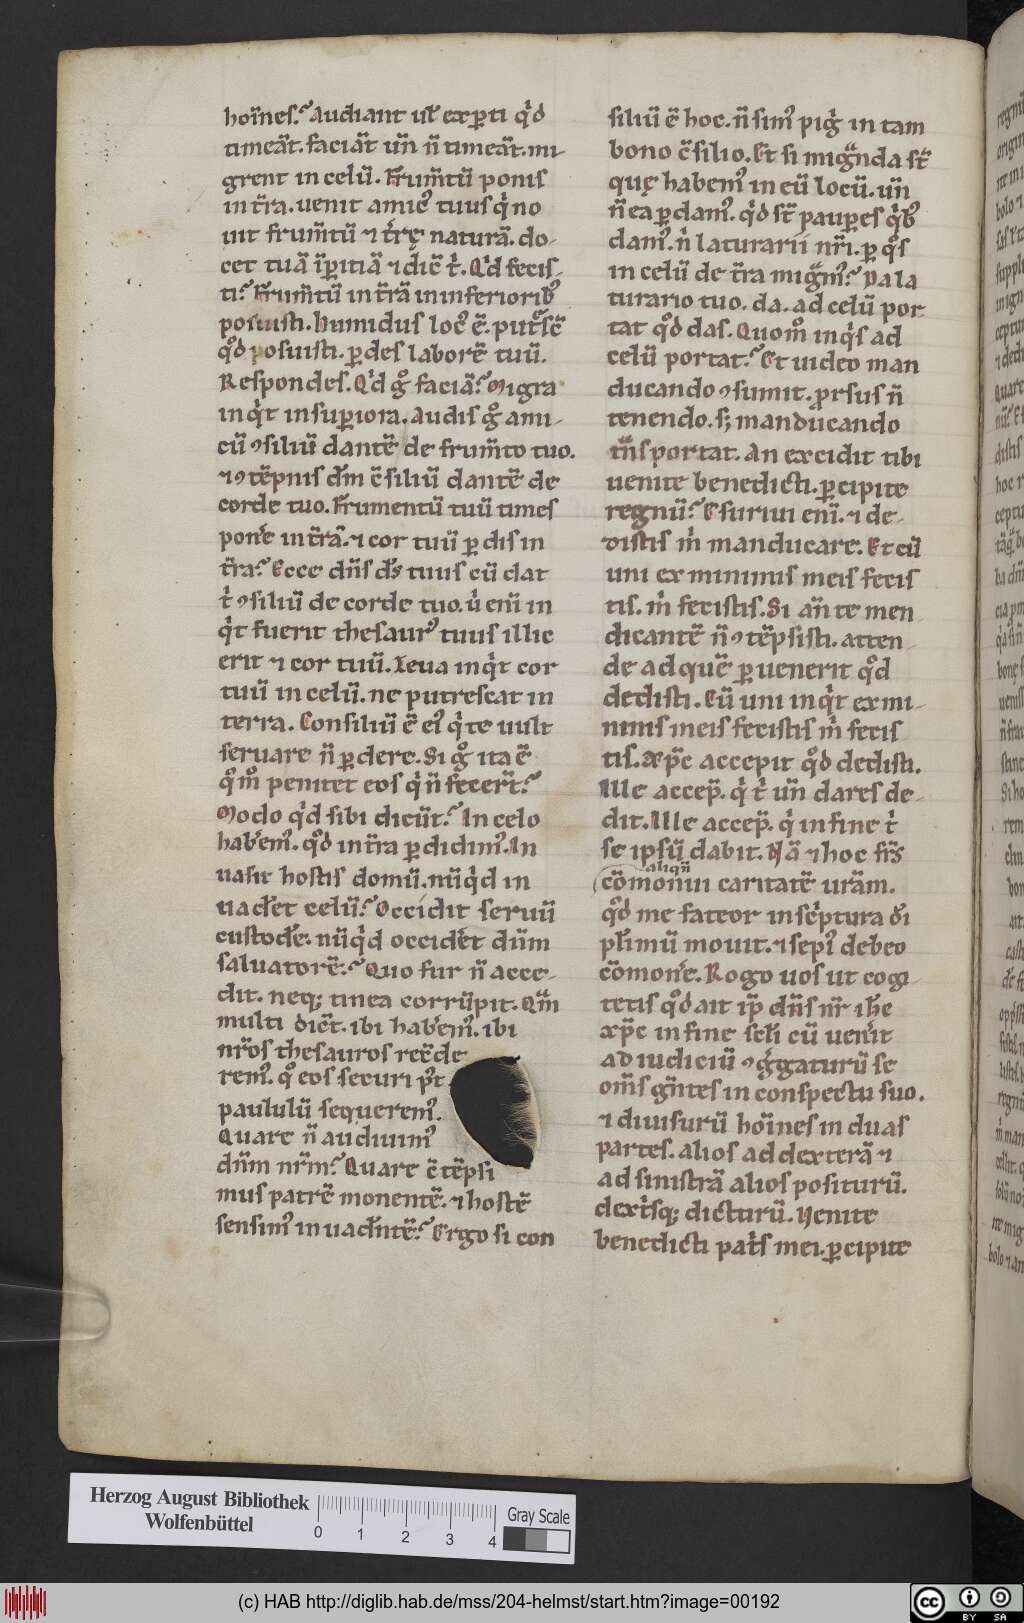 hoı̄nes? Audiant ut̄ exꝑti qⁱd
timeāt. faciāt un̄ n̄ timeāt. mi-
grent in celū. Frum̄tū ponis
in t̄ra. uenit amicꝰ tuus qⁱ no
uit frum̄tū ⁊ t̄rę naturā. do-
cet tuā īꝑitiā ⁊ dic̄ t̄. Qⁱd fecis-
ti? Frum̄tū in t̄rā in inferioribꝰ
posuisti. humidus locꝰ ē. put̄sc̄
qᵒd posuisti. ꝑdes laborē tuū.
Respondes. Qⁱd gᵒ faciā? Migra
inqⁱt in suꝑiora. Audis gᵒ ami-
cū ꝯsiliū dantē de frum̄to tuo.
⁊ ꝯtēpnis dm̄ c̄siliū dantē de
corde tuo. Frumentū tuū times
pone in t̄rā. ⁊ cor tuū ꝑdis in
t̄ra? Ecce dn̄s ds̄ tuus cū dat
tⁱ ꝯsiliū de corde tuo. uⁱ eni in
qⁱt fuerit thesaurꝰ tuus illic
erit ⁊ cor tuū. Leua inqⁱt cor
tuū in celū. ne putrescat in
terra. Consiliū ē eiꝰ qⁱ te uult
seruare n̄ ꝑdere. Si gᵒ ita ē
qᵒmᵒ penitet eos qⁱ n̄ fecert̄?
Modo qⁱd sibi dicūt? In celo
habemꝰ. qᵒd in t̄ra ꝑdidimꝰ. In
uasit hostis domū. nūqⁱd in
uadet celū? Occidit seruū
custodē. nūqⁱd occidet dūm
saluatorē? Quo fur n̄ acce-
dit. neq; tinea corrūpit. Qᵃm
multi dict̄. ibi habemꝰ. ibi
nr̄os thesauros recōde
remꝰ. qᵒ eos securi pᵒt
paululū sequeremꝰ.
Quare n̄ audiuimꝰ
dn̄m nr̄m? Quare c̄tēpsi
mus patrē monentē. ⁊ hostē
sensimꝰ inuadn̄tē? Ergo si con
siliū ē hoc. n̄ simꝰ pigⁱ in tam
bono c̄silio. Et si migᵃnda st̄
que habemꝰ in eū locū. un̄
n̄ ea ꝑdamꝰ. qⁱd st̄ pauꝑes qⁱbꝰ
damꝰ. nⁱ laturarii nr̄i. ꝑ qᵒs
in celū de t̄ra migᵃmꝰ? Da la
turario tuo. da. ad celū por
tat qᵒd das. Quomᵒ inqⁱs ad
celū portat? Et uideo man
ducando ꝯsumit. prorsus n̄
tenendo. s; manducando
tn̄s portat. An excidit tibi
uenite benedicti. ꝑcipite
regnū? Esuriui eni. ⁊ de-
distis mⁱ manducare. Et cū
uni ex minimis meis fecis
tis. mⁱ fecistis. Si an̄ te men
dicantē n̄ ꝯtēpsisti. atten-
de ad quē ꝑuenerit qᵒd
dedisti. Cū uni inqⁱt ex mi-
nimis meis fecistis mⁱ fecis
tis. xp̄c accepit qᵒd dedisti.
Ille accep̄. qⁱ tⁱ un̄ dares de-
dit. Ille accep̄. qⁱ in fine tⁱ
se ipsū dabit. Nā ⁊ hoc fr̄s
aliqn̄
cōmonui caritatē urām.
qᵒd me fateor in scⁱptura di
plⁱmū mouit. ⁊ sepiꝰ debeo
cōmonē. Rogo uos ut cogi-
tetis qᵒd ait ip̄ dn̄s nr̄ ih̄c
xp̄c in fine scl̄i cū uenit
ad iudiciū ꝯgⁱgaturū se
om̄s gn̄tes in conspectu suo.
⁊ diuisurū hoı̄nes in duas
partes. alios ad dexterā ⁊
ad sinistrā alios positurū.
dextⁱsq; dicturū. Uenite
benedicti patⁱs mei. ꝑcipite
Herzog August Bibliothek
Wolfenbüttel
0 1 2 3 4
Gray Scale
(c) HAB http://diglib.hab.de/mss/204-helmst/start.htm?image=00192
cc BY SA